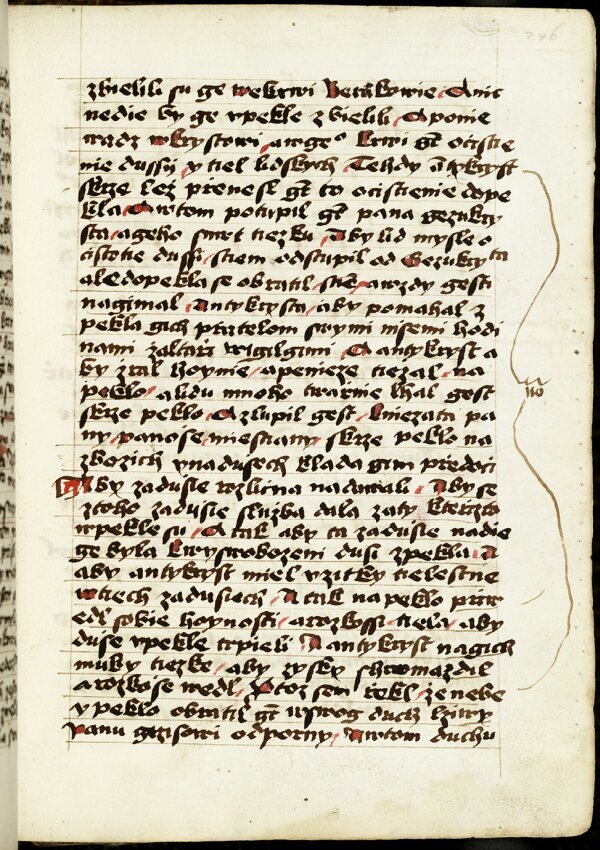 246
zbielili su ge wekrwi Beránkowie A nic
nedie by ge vpekle zbielili A ponie
wadz wkrystowi a wge° krwi gt ocistie
nie dussij y tiel lidskych Tehdy antykryst
skrze lež prenesl gt to ocistienie dope
kla A wtom potupil gt pana gezukry
sta a geho smrt tiezku Aby lid mysle o
cistotie duss stiem odstupil od Gezukrysta
ale dopekla se obratil stiem a wzdy gesti
nagimal Antykrysta aby pomahal z
pekla gich prátelom swymi mssemi hodi
nami žaltári wigilgimi A antykryst a
by zral hoynie a penieze tiezal na
peklo a lidu mnoho twárnie lhal gest
skrze peklo A zlupil gest kniezata pa
ny panose miestiany skrze peklo na
zbozich y na dusech klada gim predoci
Aby zadusie rozlicna nadawali Aby se
ztoho zadusie služba dala zaty kteržto
wpekle su A tak aby ta zadusie nadie
ge byla kwyswobozeni dusi zpekla A
aby antykryst miel vzitky tielestne
wtiech zadusiech A tak na peklo priw
edl sobie hoynosti a rozkossi tiela aby
duse vpekle trpieli A antykryst nagich
muky tiezke aby zysky shromazdil
a rozkose wedl Protoz sem rekl ze nebe
y peklo obratil gt wswog duch lziwy
Panu gezisowi odporny A wtom duchu